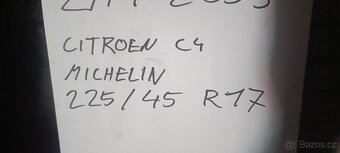 CITROEN C4
MICHELIN
225/45 R17
© Bazos.cz